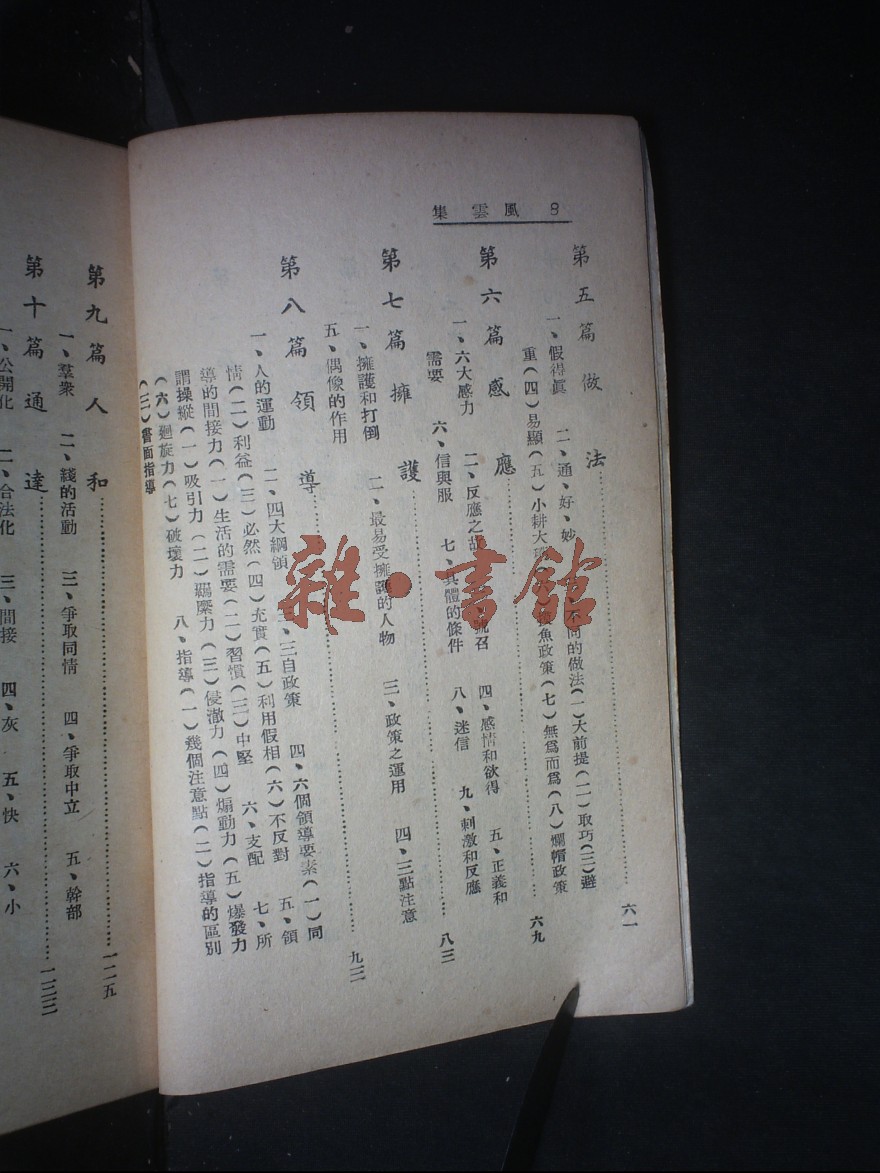 8 風雲集
第五篇 做法……六一
一、假得眞 二、通、好、妙 不同的做法(一)大前提(二)取巧(三)避
重(四)易顯(五)小耕大 魚政策(七)無爲而爲(八)爛帽政策
第六篇 感應……六九
一、六大感力 二、反應之故 號召 四、感情和欲得 五、正義和
需要 六、信與服 七、具體的條件 八、迷信 九、刺激和反應
第七篇 擁護……八三
一、擁護和打倒 二、最易受擁護的人物 三、政策之運用 四、三點注意
五、偶像的作用
第八篇 領導……九三
一、人的運動 二、四大綱領 三、三自政策 四、六個領導要素(一)同
情(二)利益(三)必然(四)充實(五)利用假相(六)不反對 五、領
導的間接力(一)生活的需要(二)習慣(三)中堅 六、支配 七、所
謂操縱(一)吸引力(二)羈縻力(三)侵澈力(四)煽動力(五)爆發力
(六)廻旋力(七)破壞力 八、指導(一)幾個注意點(二)指導的區別
(三)書面指導
第九篇 人和……一二五
一、羣衆 二、綫的活動 三、爭取同情 四、爭取中立 五、幹部
第十篇 通達……一三三
一、公開化 二、合法化 三、間接 四、灰 五、快 六、小
雜·書館